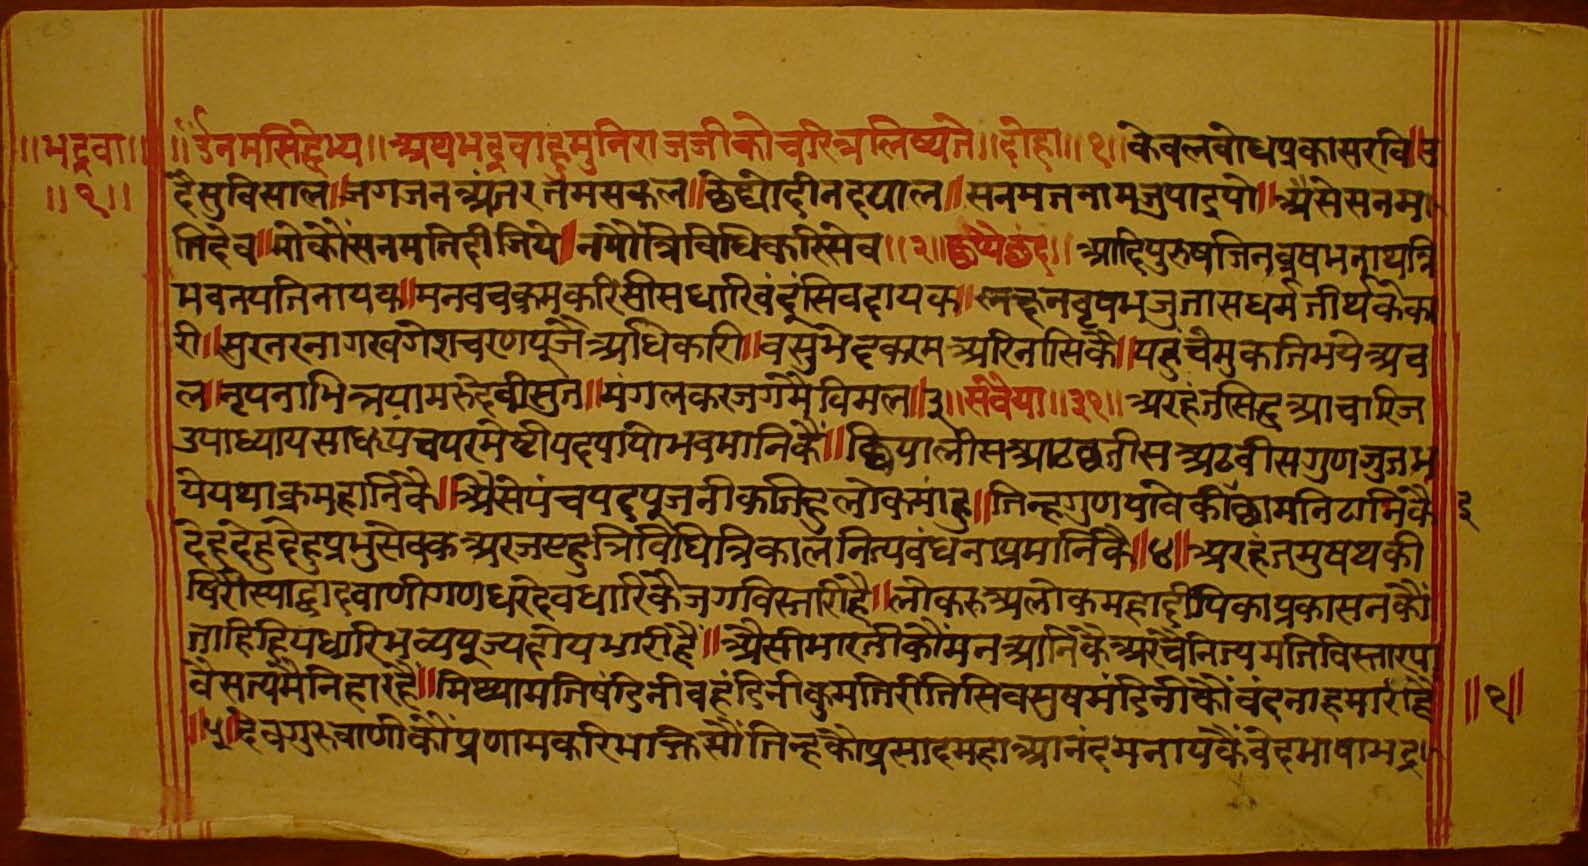 ॥भद्रवा॥ ॥ॐनमसिद्धेभ्य॥ अथभद्रवाहूमुनिराजजीकोचरित्रलिष्यते॥दोहा॥१॥केवलवोधप्रकासरवि॥उ
॥१॥ दैसुविसाल॥जगजनअंतरतमसकल॥छेद्योदीनदयाल॥सनमतनामजुपाइयो॥अैसेसनमा
तिदेव॥मोकौंसनमतिदीजिये॥नमौंत्रिविधिकरिसेव॥२॥छप्पैछंद॥आदिपुरुषजिनवृषभनाथत्रि
भवनपतिनायक॥मनवचक्रमकरिसीसधारिवंदूंसिवदायक॥लहनवृषभजुतासधर्मतीर्थकेक
री॥सुरनरनागखगेशचरणपूजैअधिकारी॥वसुभेदकरमअरिनासिकै॥पहुचैमुकतिभयेअच
ल॥नृपनाभित्रयामरुदेवीसुत॥मंगलकरजगमैविमल॥३॥सवैया॥३१॥अरहंतसिद्धआचारिज
उपाध्यायसाधपंचपरमेष्टीपदपायोभवमानिकैं॥छियालीसआठछतीसअठवीसगुणजुतभ
येयथाक्रमहानिकै॥अैसेपंचपदपूजनीकतिहुलोकमांहु॥तिन्हगुणपावेकीछामनिठानिकै ३
देहदेहुदेहुप्रभुसेवकअरजएहुत्रिविधित्रिकालनित्यवंधनाप्रमानिकै॥४॥अरहंतमुषथकी
षिरीस्याद्वादवाणीगणधरदेवधारिकैजगविस्तारीहै॥लोकरुअलोकमहादीपिकाप्रकासनकौं
ताहिहियधारिभव्यपूज्यहोयभारीहै॥अैसीभारतीकौंमनआनिकैअरचैनित्यमतिविस्तारपा
वैसत्यमैनिहारहै॥मिथ्यामतिषंडिनीवहंडिनीकुमतिरीतिसिवसुषमंडिनीकौंवंदनाहमारीहै ॥१॥
॥५॥देवगुरुवाणीकौंप्रणामकरिभक्तिसौंतिन्हकौप्रसादमहाआनंदमनायकैंवेदभाषाभद्रा